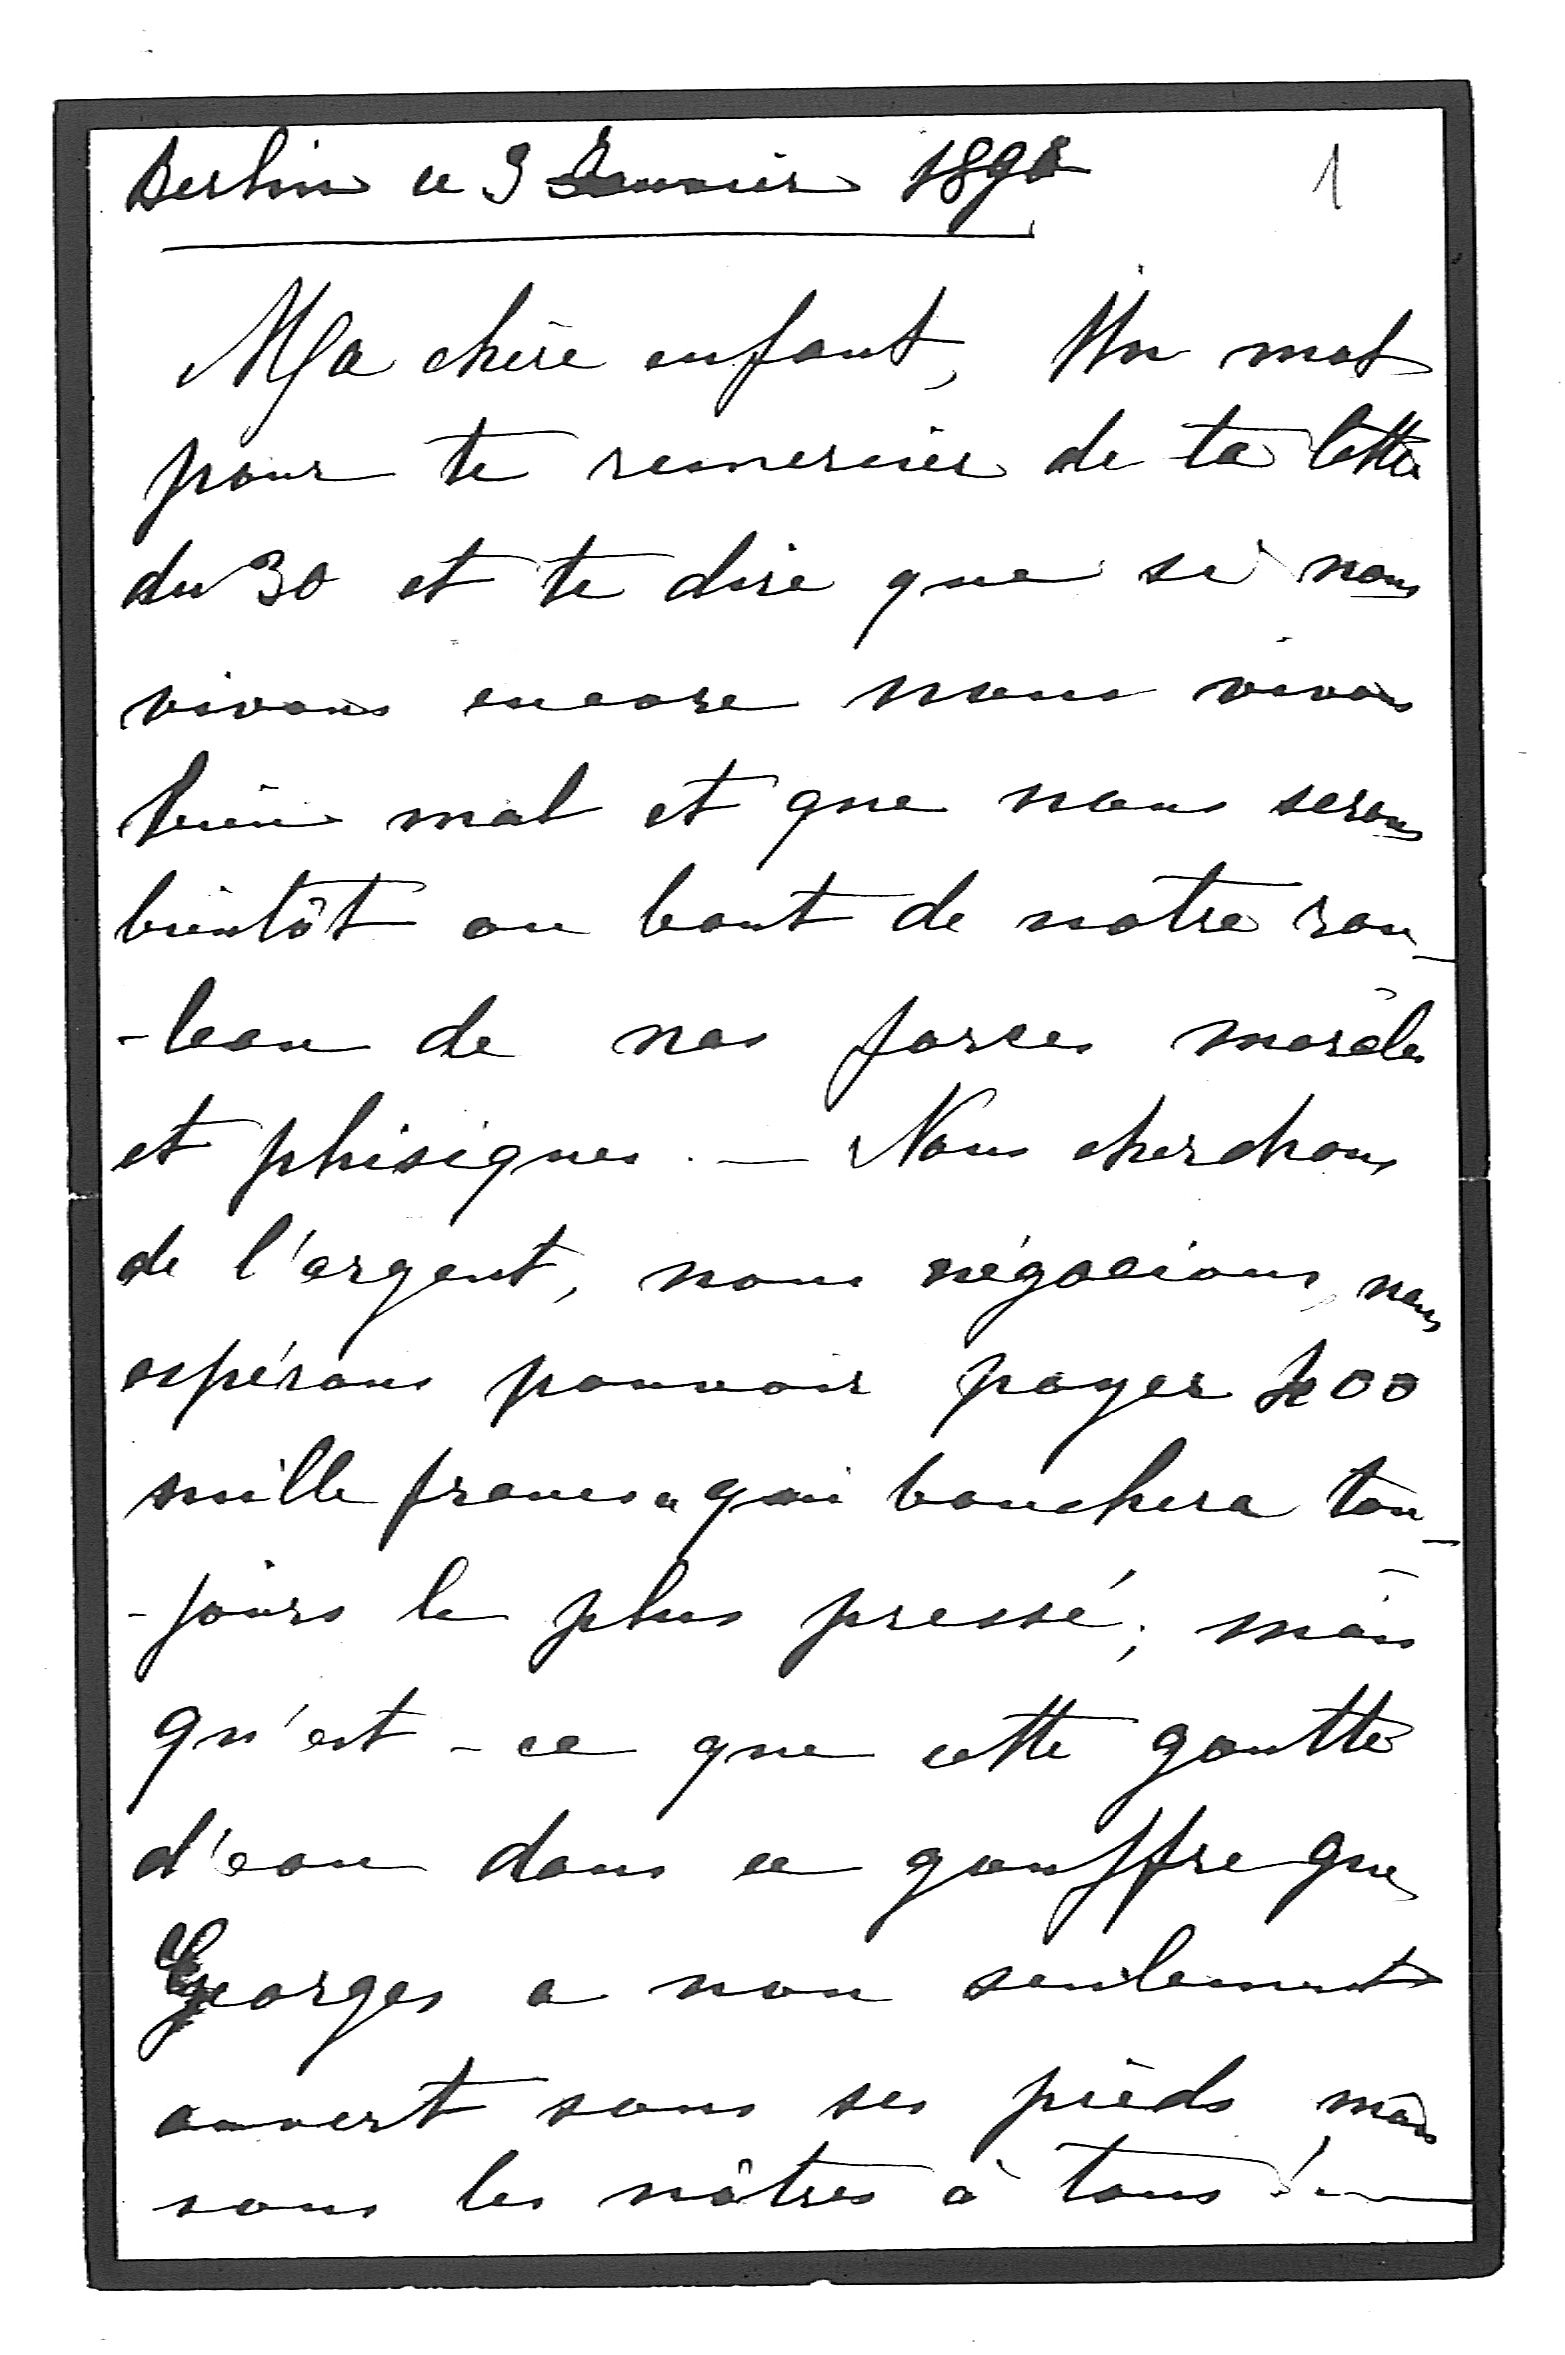 Berlin ce 3 Janvier 1898
1
Ma chère enfant, Un mot
pour te remercier de ta lettre
du 30 et te dire que si nous
vivons encore nous vivons
bien mal et que nous serons
bientôt au bout de notre rou-
-leau de nos forces morales
et phisiques. — Nous cherchons
de l'argent, nous négocions, nous
espérons pouvoir payer 400
mille francs qui bouchera tou-
-jours le plus pressé; mais
qu'est-ce que cette goutte
d'eau dans ce gouffre que
Georges a non seulement
ouvert sous ses pieds mais
sous les nôtres à tous! —